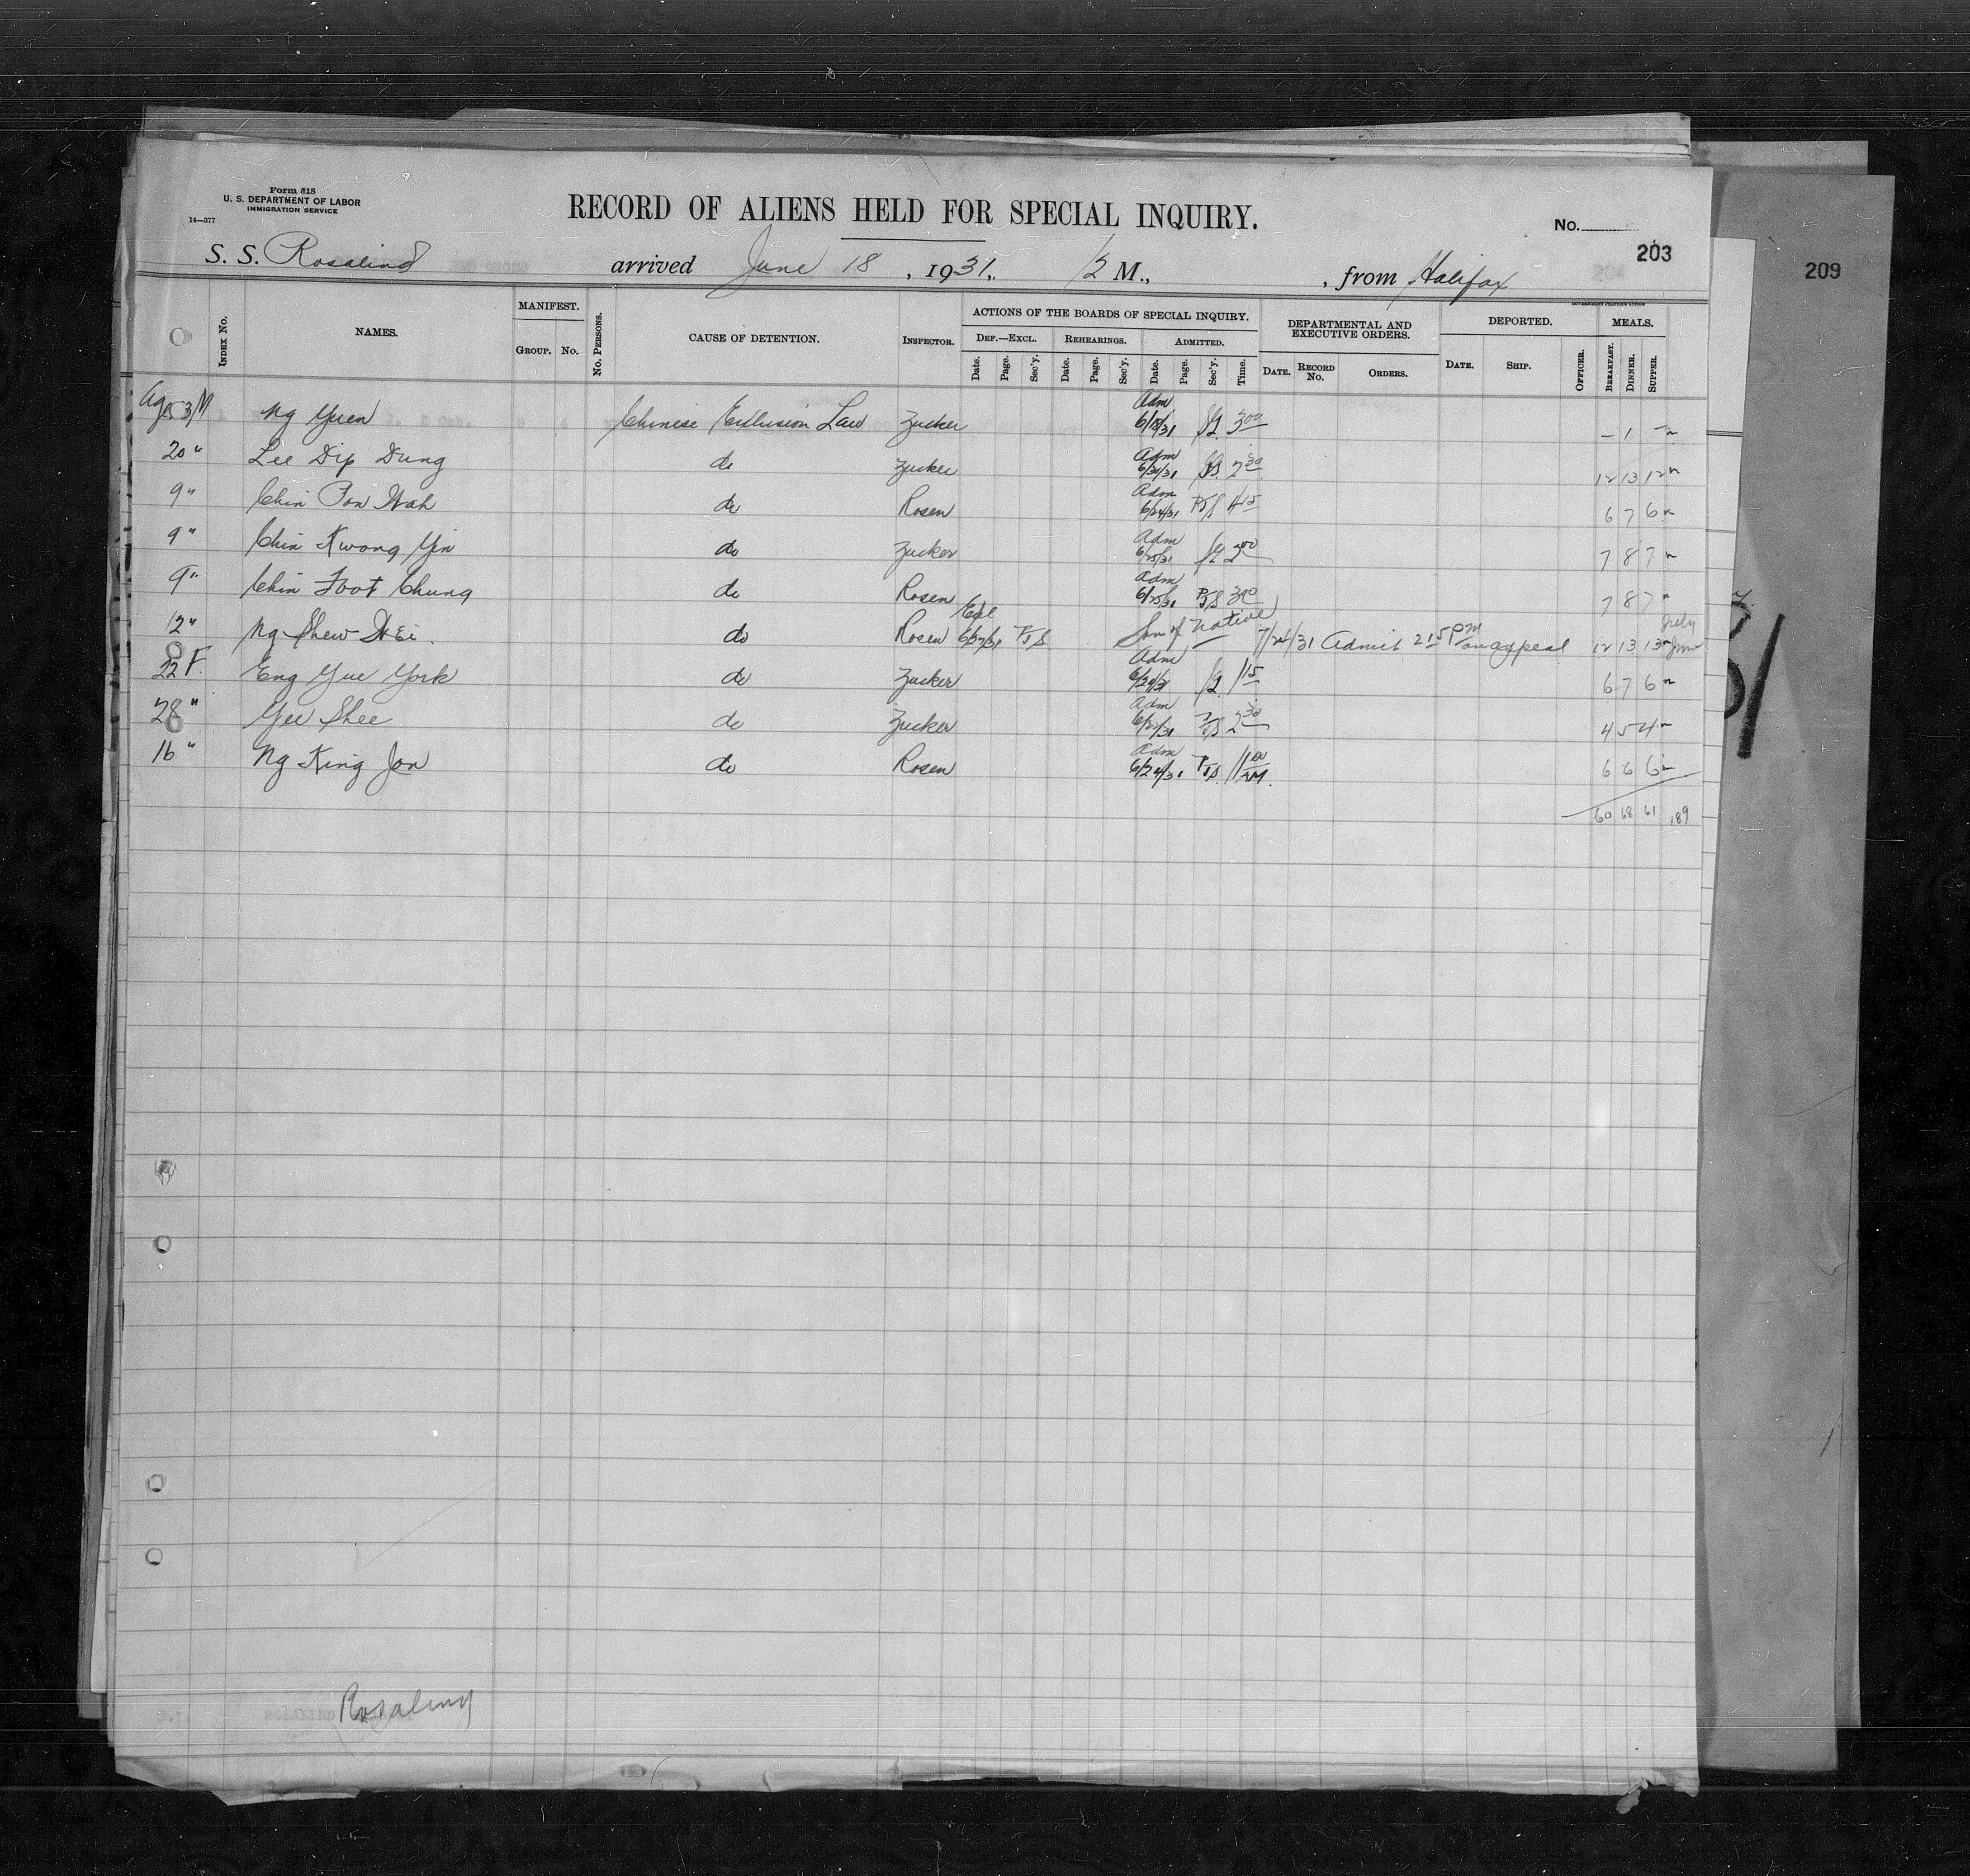 Form 518
U. S. DEPARTMENT OF LABOR
IMMIGRATION SERVICE
14—377
RECORD OF ALIENS HELD FOR SPECIAL INQUIRY.
No.
203
209
S. S. Rosalind arrived June 18, 1931, 12 M., from Halifax
GOVERNMENT PRINTING OFFICE
INDEX No. NAMES. MANIFEST. GROUP. No. No. PERSONS. CAUSE OF DETENTION. INSPECTOR. ACTIONS OF THE BOARDS OF SPECIAL INQUIRY. DEPARTMENTAL AND EXECUTIVE ORDERS. DEPORTED. MEALS.
DEF.—EXCL. REHEARINGS. ADMITTED.
Date. Page. Sec'y. Date. Page. Sec'y. Date. Page. Sec'y. Time. DATE. RECORD No. ORDERS. DATE. SHIP. OFFICER. BREAKFAST. DINNER. SUPPER.
Age 53 M Ng Yuen Chinese Exclusion Law Zucker Adm 6/18/31 3 00 – 1 –
20 " Lee Dip Dung do Zucker Adm 2 30 12 13 12
9 " Chin Pon Wah do Rosen Adm 6/24/31 PJS 4 15 6 7 6
9 " Chin Kwong Yin do Zucker Adm 6/25/31 2 00 7 8 7
9 " Chin Foot Chung do Rosen Adm 6/25/31 PJS 3 00 7 8 7
12 " Ng Shew Wei. do Rosen Excl 6/27/31 PJS Son of native 7/24/31 Admit 2 15 PM on appeal 12 13 13 July June
22 F. Eng Yue York do Zucker Adm 6/24/31 1 15 6 7 6
28 " Yee Shee do Zucker Adm 6/22/31 PJS 2 30 4 5 4
16 " Ng King Jon do Rosen Adm 6/24/31 PJS 11 00 AM. 6 6 6
60 68 61 189
ROSALIND Rosalind